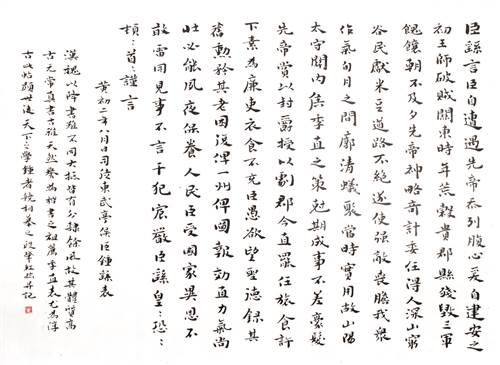 臣繇言臣自遭遇先帝忝列腹心爰自建安之
初王師破賊關東時年荒穀貴郡縣殘毀三軍
餽饟朝不及夕先帝神略奇計委任得人深山窮
谷民獻米豆道路不絕遂使強敵喪膽我眾
作氣旬月之間廓清蟻聚當時實用故山陽
太守關內侯季直之策尅期成事不差豪髮
先帝賞以封爵授以劇郡今直罷任旅食許
下素為廉吏衣食不充臣愚欲望聖德錄其
舊勳矜其老困復俾一州俾圖報効直力氣尚
壯必能夙夜保養人民臣受國家異恩不
敢雷同見事不言干犯宸嚴臣繇皇:恐:
頓:首:謹言
黃初二年八月日司徒東武亭侯臣鍾繇表
漢魏以降書雖不同大抵皆有分隸餘風故其體質高
古元常真書古雅天然為楷書之祖薦季直表尤為淳
古此帖世後天下之學鍾者競相摹之并記